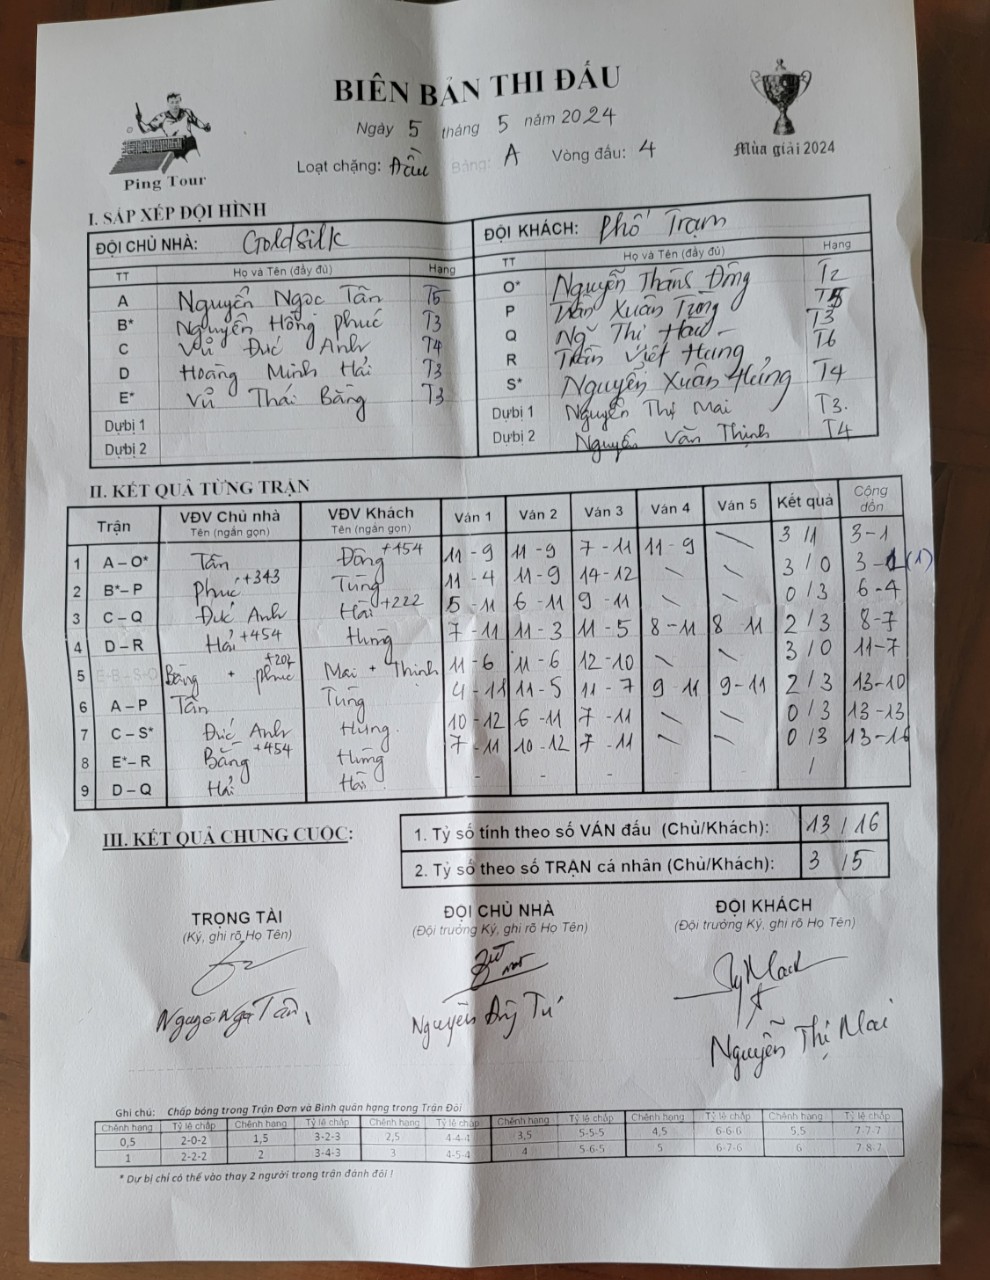 BIÊN BẢN THI ĐẤU
Ngày 5 tháng 5 năm 2024
Loạt chặng: Đầu Bảng: A Vòng đấu: 4
Ping Tour
Mùa giải 2024
I. SẮP XẾP ĐỘI HÌNH
ĐỘI CHỦ NHÀ: GoldSilk
TT Họ và Tên (đầy đủ) Hạng
A Nguyễn Ngọc Tân T5
B* Nguyễn Hồng Phúc T3
C Vũ Đức Anh T4
D Hoàng Minh Hải T3
E* Vũ Thái Bằng T3
Dự bị 1
Dự bị 2
ĐỘI KHÁCH: Phố Trạm
TT Họ và Tên (đầy đủ) Hạng
O* Nguyễn Thành Đồng T2
P Trần Xuân Tùng T5
Q Thị T3
R Trần Việt Hưng T6
S* Nguyễn Xuân Hưng T4
Dự bị 1 Nguyễn Thị Mai T3.
Dự bị 2 Nguyễn Văn Thịnh T4
II. KẾT QUẢ TỪNG TRẬN
Trận VĐV Chủ nhà Tên (ngắn gọn) VĐV Khách Tên (ngắn gọn) Ván 1 Ván 2 Ván 3 Ván 4 Ván 5 Kết quả Cộng dồn
1 A – O* Tân Đồng +454 11 - 9 11 - 9 7 - 11 11 - 9 \ 3 / 1 3 - 1
2 B* – P Phúc +343 Tùng 11 - 4 11 - 9 14 - 12 \ \ 3 / 0 3 - (1)
3 C – Q Đức Anh Hậu +222 5 - 11 6 - 11 9 - 11 \ \ 0 / 3 6 - 4
4 D – R Hải +454 Hưng 7 - 11 11 - 3 11 - 5 8 - 11 8 11 2 / 3 8 - 7
5 E-B – S-O Bằng + Phúc +202 Mai + Thịnh 11 - 6 11 - 6 12 - 10 \ \ 3 / 0 11 - 7
6 A – P Tân Tùng 4 - 11 11 - 5 11 - 7 9 - 11 9 - 11 2 / 3 13 - 10
7 C – S* Đức Anh Hưng. 10 - 12 6 - 11 7 - 11 \ \ 0 / 3 13 - 13
8 E* – R Bằng +454 Hưng 7 - 11 10 - 12 7 - 11 \ \ 0 / 3 13 - 16
9 D – Q Hải Hậu - - - /
III. KẾT QUẢ CHUNG CUỘC:
1. Tỷ số tính theo số VÁN đấu (Chủ/Khách): 13 / 16
2. Tỷ số theo số TRẬN cá nhân (Chủ/Khách): 3 / 5
TRỌNG TÀI
(Ký, ghi rõ Họ Tên)
Nguyễn Ngọc Tân
ĐỘI CHỦ NHÀ
(Đội trưởng Ký, ghi rõ Họ Tên)
Nguyễn Tú
ĐỘI KHÁCH
(Đội trưởng Ký, ghi rõ Họ Tên)
Nguyễn Thị Mai
Ghi chú: Chấp bóng trong Trận Đơn và Bình quân hạng trong Trận Đôi
Chênh hạng Tỷ lệ chấp Chênh hạng Tỷ lệ chấp Chênh hạng Tỷ lệ chấp Chênh hạng Tỷ lệ chấp Chênh hạng Tỷ lệ chấp Chênh hạng Tỷ lệ chấp
0,5 2-0-2 1,5 3-2-3 2,5 4-4-4 3,5 5-5-5 4,5 6-6-6 5,5 7-7-7
1 2-2-2 2 3-4-3 3 4-5-4 4 5-6-5 5 6-7-6 6 7-8-7
* Dự bị chỉ có thể vào thay 2 người trong trận đánh đôi !